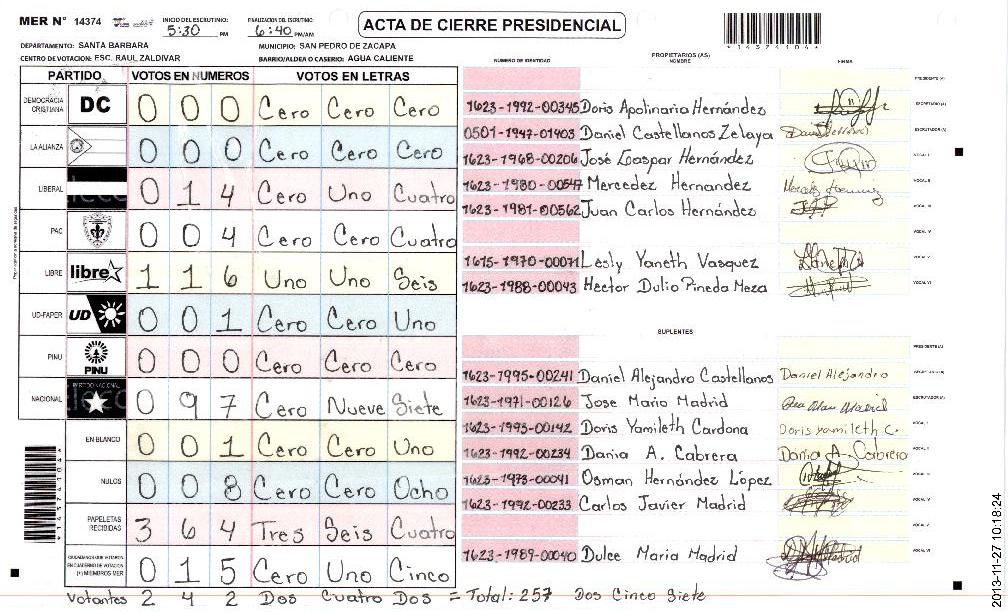 MER N° 14374
INICIO DEL ESCRUTINIO: 5:30 PM
FINALIZACION DEL ESCRUTINIO: 6:40 PM/AM
ACTA DE CIERRE PRESIDENCIAL
*14374104*
DEPARTAMENTO: SANTA BARBARA
MUNICIPIO: SAN PEDRO DE ZACAPA
CENTRO DE VOTACION: ESC. RAUL ZALDIVAR
BARRIO/ALDEA O CASERIO: AGUA CALIENTE
PARTIDO VOTOS EN NUMEROS VOTOS EN LETRAS
DEMOCRACIA CRISTIANA DC 0 0 0 Cero Cero Cero
LA ALIANZA 0 0 0 Cero Cero Cero
LIBERAL 0 1 4 Cero Uno Cuatro
PAC 0 0 4 Cero Cero Cuatro
LIBRE libre 1 1 6 Uno Uno Seis
UD-FAPER UD 0 0 1 Cero Cero Uno
PINU PINU 0 0 0 Cero Cero Cero
NACIONAL PARTIDO NACIONAL 0 9 7 Cero Nueve Siete
EN BLANCO 0 0 1 Cero Cero Uno
NULOS 0 0 8 Cero Cero Ocho
PAPELETAS RECIBIDAS 3 6 4 Tres Seis Cuatro
CIUDADANOS QUE VOTARON EN CUADERNO DE VOTACION (+) MIEMBROS MER 0 1 5 Cero Uno Cinco
Votantes 2 4 2 Dos Cuatro Dos = Total: 257 Dos Cinco Siete
*14374104*
NUMERO DE IDENTIDAD PROPIETARIOS (AS) NOMBRE FIRMA
PRESIDENTE (A)
1623-1992-00345 Doris Apolinaria Hernández SECRETARIO (A)
0501-1947-01403 Daniel Castellanos Zelaya ESCRUTADOR (A)
1623-1968-00206 José Gaspar Hernández VOCAL I
1623-1980-00547 Mercedez Hernandez VOCAL II
1623-1981-00562 Juan Carlos Hernández VOCAL III
VOCAL IV
1615-1970-00071 Lesly Yaneth Vasquez VOCAL V
1623-1988-00043 Hector Dulio Pineda Meza VOCAL VI
SUPLENTES
PRESIDENTE (A)
1623-1995-00241 Daniel Alejandro Castellanos Daniel Alejandro SECRETARIO (A)
1623-1971-00126 Jose Mario Madrid ESCRUTADOR (A)
1623-1993-00142 Doris Yamileth Cardona Doris Yamileth C. VOCAL I
1623-1992-00234 Dania A. Cabrera Dania A. Cabrera VOCAL II
1623-1973-00091 Osman Hernández López VOCAL III
1623-1992-00233 Carlos Javier Madrid VOCAL IV
VOCAL V
1623-1989-00040 Dulce Maria Madrid VOCAL VI
2013-11-27 10:18:24